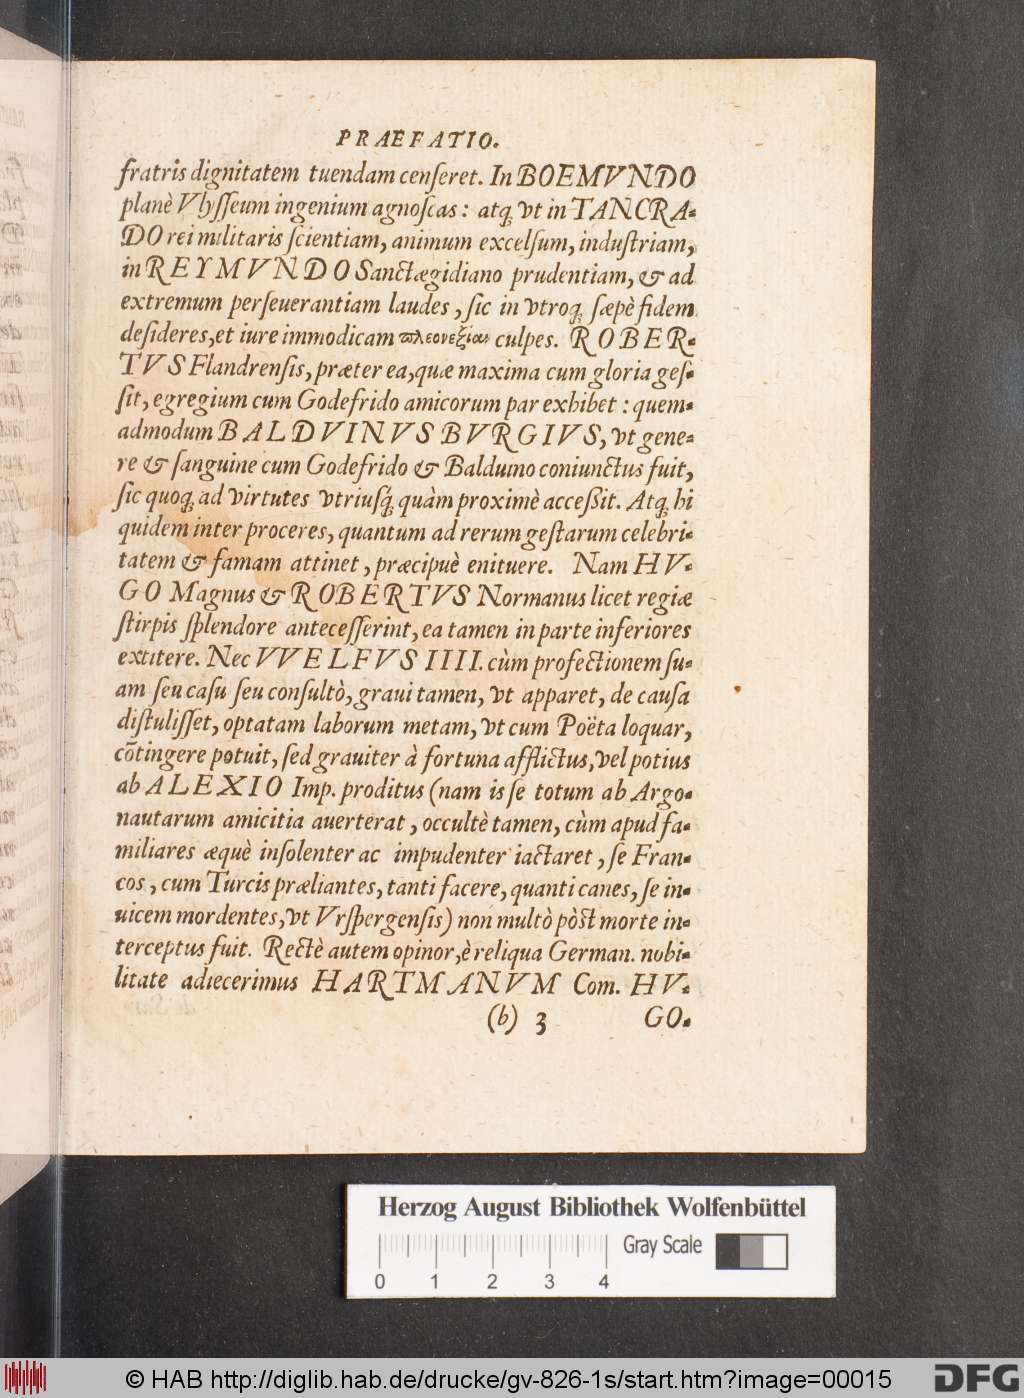 PRAEFATIO.
fratris dignitatem tuendam censeret. In BOEMVNDO
planè Vlysseum ingenium agnoscas: atq; vt in TANCRA-
DO rei militaris scientiam, animum excelsum, industriam,
in REYMVNDO Sanctægidiano prudentiam, & ad
extremum perseuerantiam laudes, sic in vtroq; sæpè fidem
desideres, et iure immodicam πλεονεξίαν culpes. ROBER-
TVS Flandrensis, præter ea, quæ maxima cum gloria ges-
sit, egregium cum Godefrido amicorum par exhibet: quem-
admodum BALDVINVS BVRGIVS, vt gene-
re & sanguine cum Godefrido & Balduino coniunctus fuit,
sic quoq; ad virtutes vtriusq; quàm proximè accessit. Atq; hi
quidem inter proceres, quantum ad rerum gestarum celebri-
tatem & famam attinet, præcipuè enituere. Nam HV-
GO Magnus & ROBERTVS Normanus licet regiæ
stirpis splendore antecesserint, ea tamen in parte inferiores
extitere. Nec VVELFVS IIII. cùm profectionem su-
am seu casu seu consultò, graui tamen, vt apparet, de causa
distulisset, optatam laborum metam, vt cum Poëta loquar,
cõtingere potuit, sed grauiter à fortuna afflictus, vel potius
ab ALEXIO Imp. proditus (nam is se totum ab Argo-
nautarum amicitia auerterat, occultè tamen, cùm apud fa-
miliares æquè insolenter ac impudenter iactaret, se Fran-
cos, cum Turcis præliantes, tanti facere, quanti canes, se in-
uicem mordentes, vt Vrspergensis) non multò pòst morte in-
terceptus fuit. Rectè autem opinor, è reliqua German. nobi-
litate adiecerimus HARTMANVM Com. HV-
(b) 3 GO-
Herzog August Bibliothek Wolfenbüttel
Gray Scale
0 1 2 3 4
© HAB http://diglib.hab.de/drucke/gv-826-1s/start.htm?image=00015
DFG